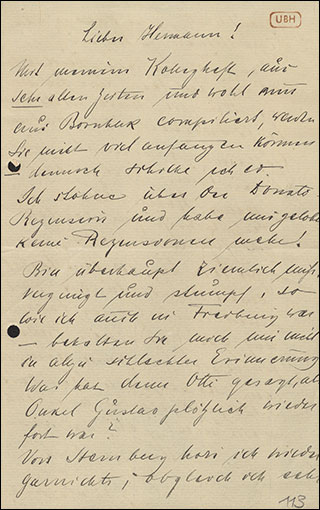 UBH
Lieber Hermann!
Mit meinem Kollegheft, aus
sehr alten Zeiten und wohl nur
aus compiliert, werden
Sie nicht viel anfangen können
– dennoch schicke ich es.
Ich stöhne über der Donato
Rezension und habe mir gelobt
keine Rezensionen mehr!
Bin überhaupt ziemlich miß-
vergnügt und stumpf, so
wie ich auch in Freiburg war
– behalten Sie mich nur nicht
in allzu schlechter Erinnerung
Was hat denn Otti gesagt, als
Onkel Gustav plötzlich wieder
fort war?
Von Sternberg höre ich wieder
garnichts, obgleich ich sehr
113